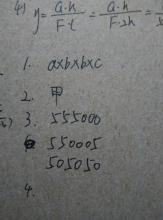 4) y = G·h / F·t = G·h / F·2h =
1. a×b×b×c
2. 甲
3. 555000
550005
505050
4.